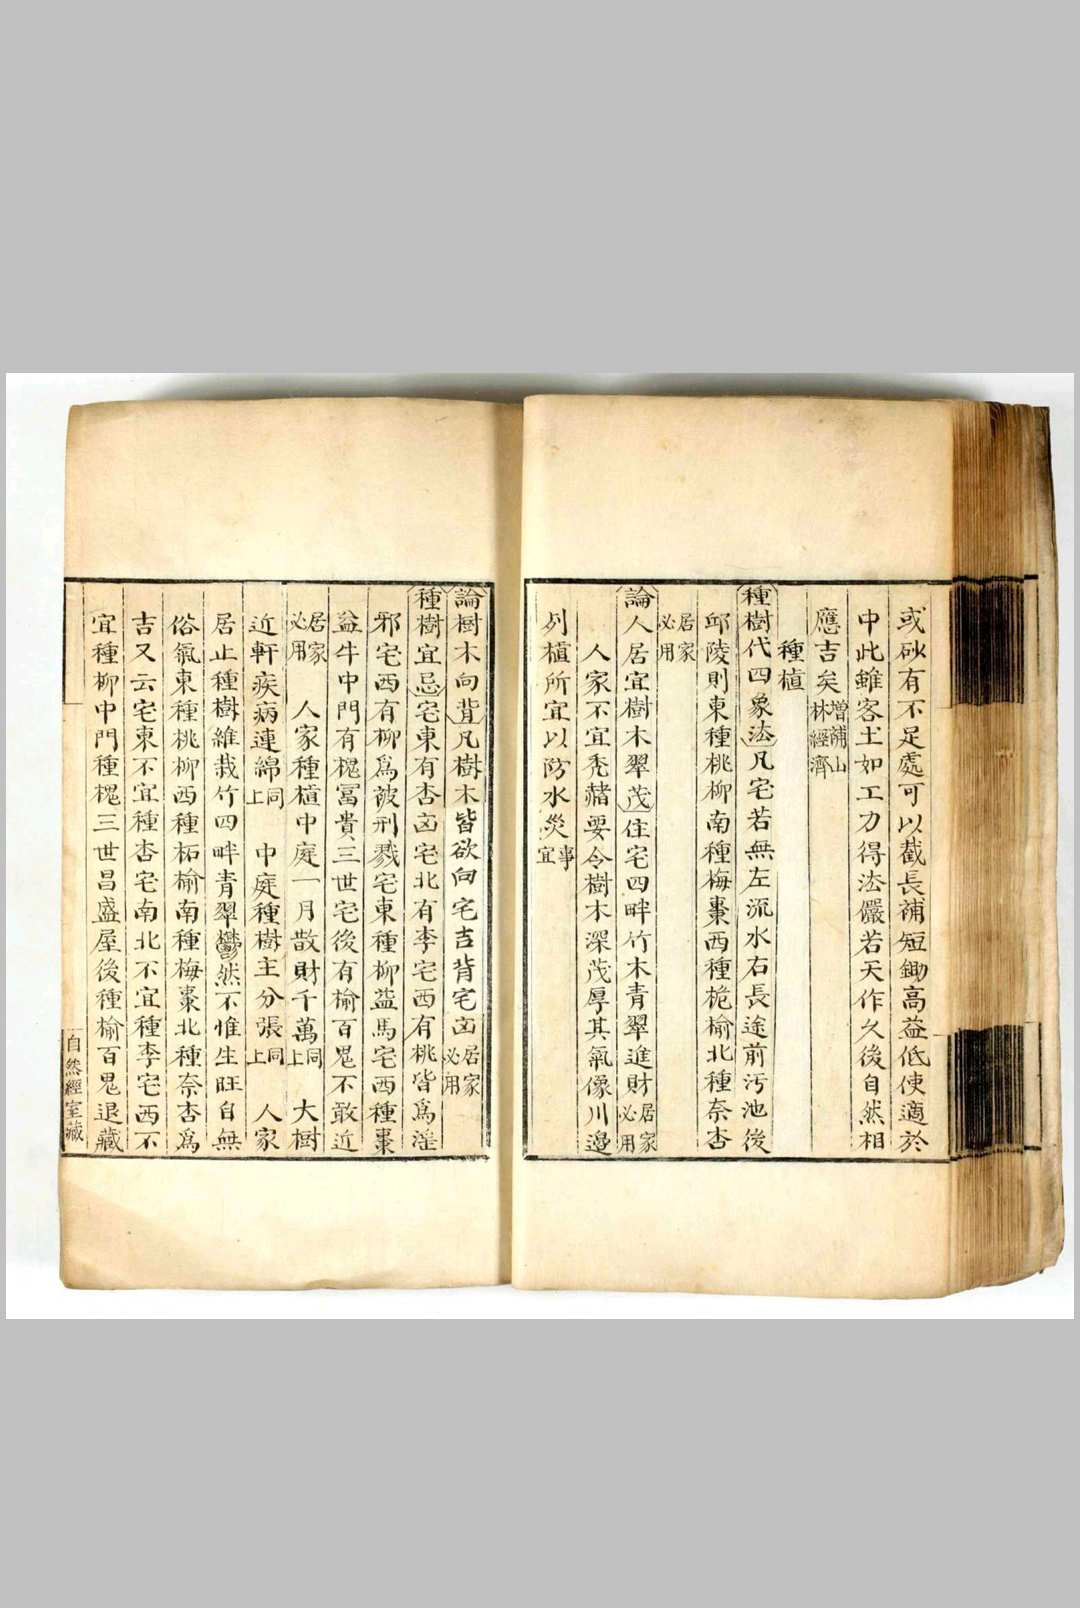 或砂有不足處可以截長補短鋤高益低使適於
中此雖客土如工力得法儼若天作久後自然相
應吉矣增補山林經濟
種植
種樹代四象法凡宅若無左流水右長途前汚池後
邱陵則東種桃柳南種梅棗西種梔榆北種奈杏
居家必用
論人居宜樹木翠茂住宅四畔竹木青翠進財居家必用
人家不宜禿赭要令樹木深茂厚其氣像川邊
列植所宜以防水災事宜
論樹木向背凡樹木皆欲向宅吉背宅凶居家必用
種樹宜忌宅東有杏凶宅北有李宅西有桃皆爲淫
邪宅西有柳爲被刑戮宅東種柳益馬宅西種棗
益牛中門有槐冨貴三世宅後有榆百鬼不敢近
居家必用 人家種植中庭一月散財千萬同上 大樹
近軒疾病連綿同上 中庭種樹主分張同上 人家
居止種樹維栽竹四畔青翠鬱然不惟生旺自無
俗氣東種桃柳西種柘榆南種梅棗北種奈杏爲
吉又云宅東不宜種杏宅南北不宜種李宅西不
宜種柳中門種槐三世昌盛屋後種榆百鬼退藏
自然經室藏